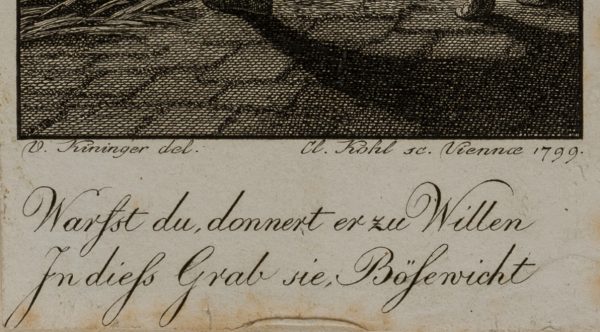 V. Kininger del. Cl. Kohl sc. Viennæ 1799.
Warfst du, donnert er zu Willen
In dieſs Grab sie, Böſewicht